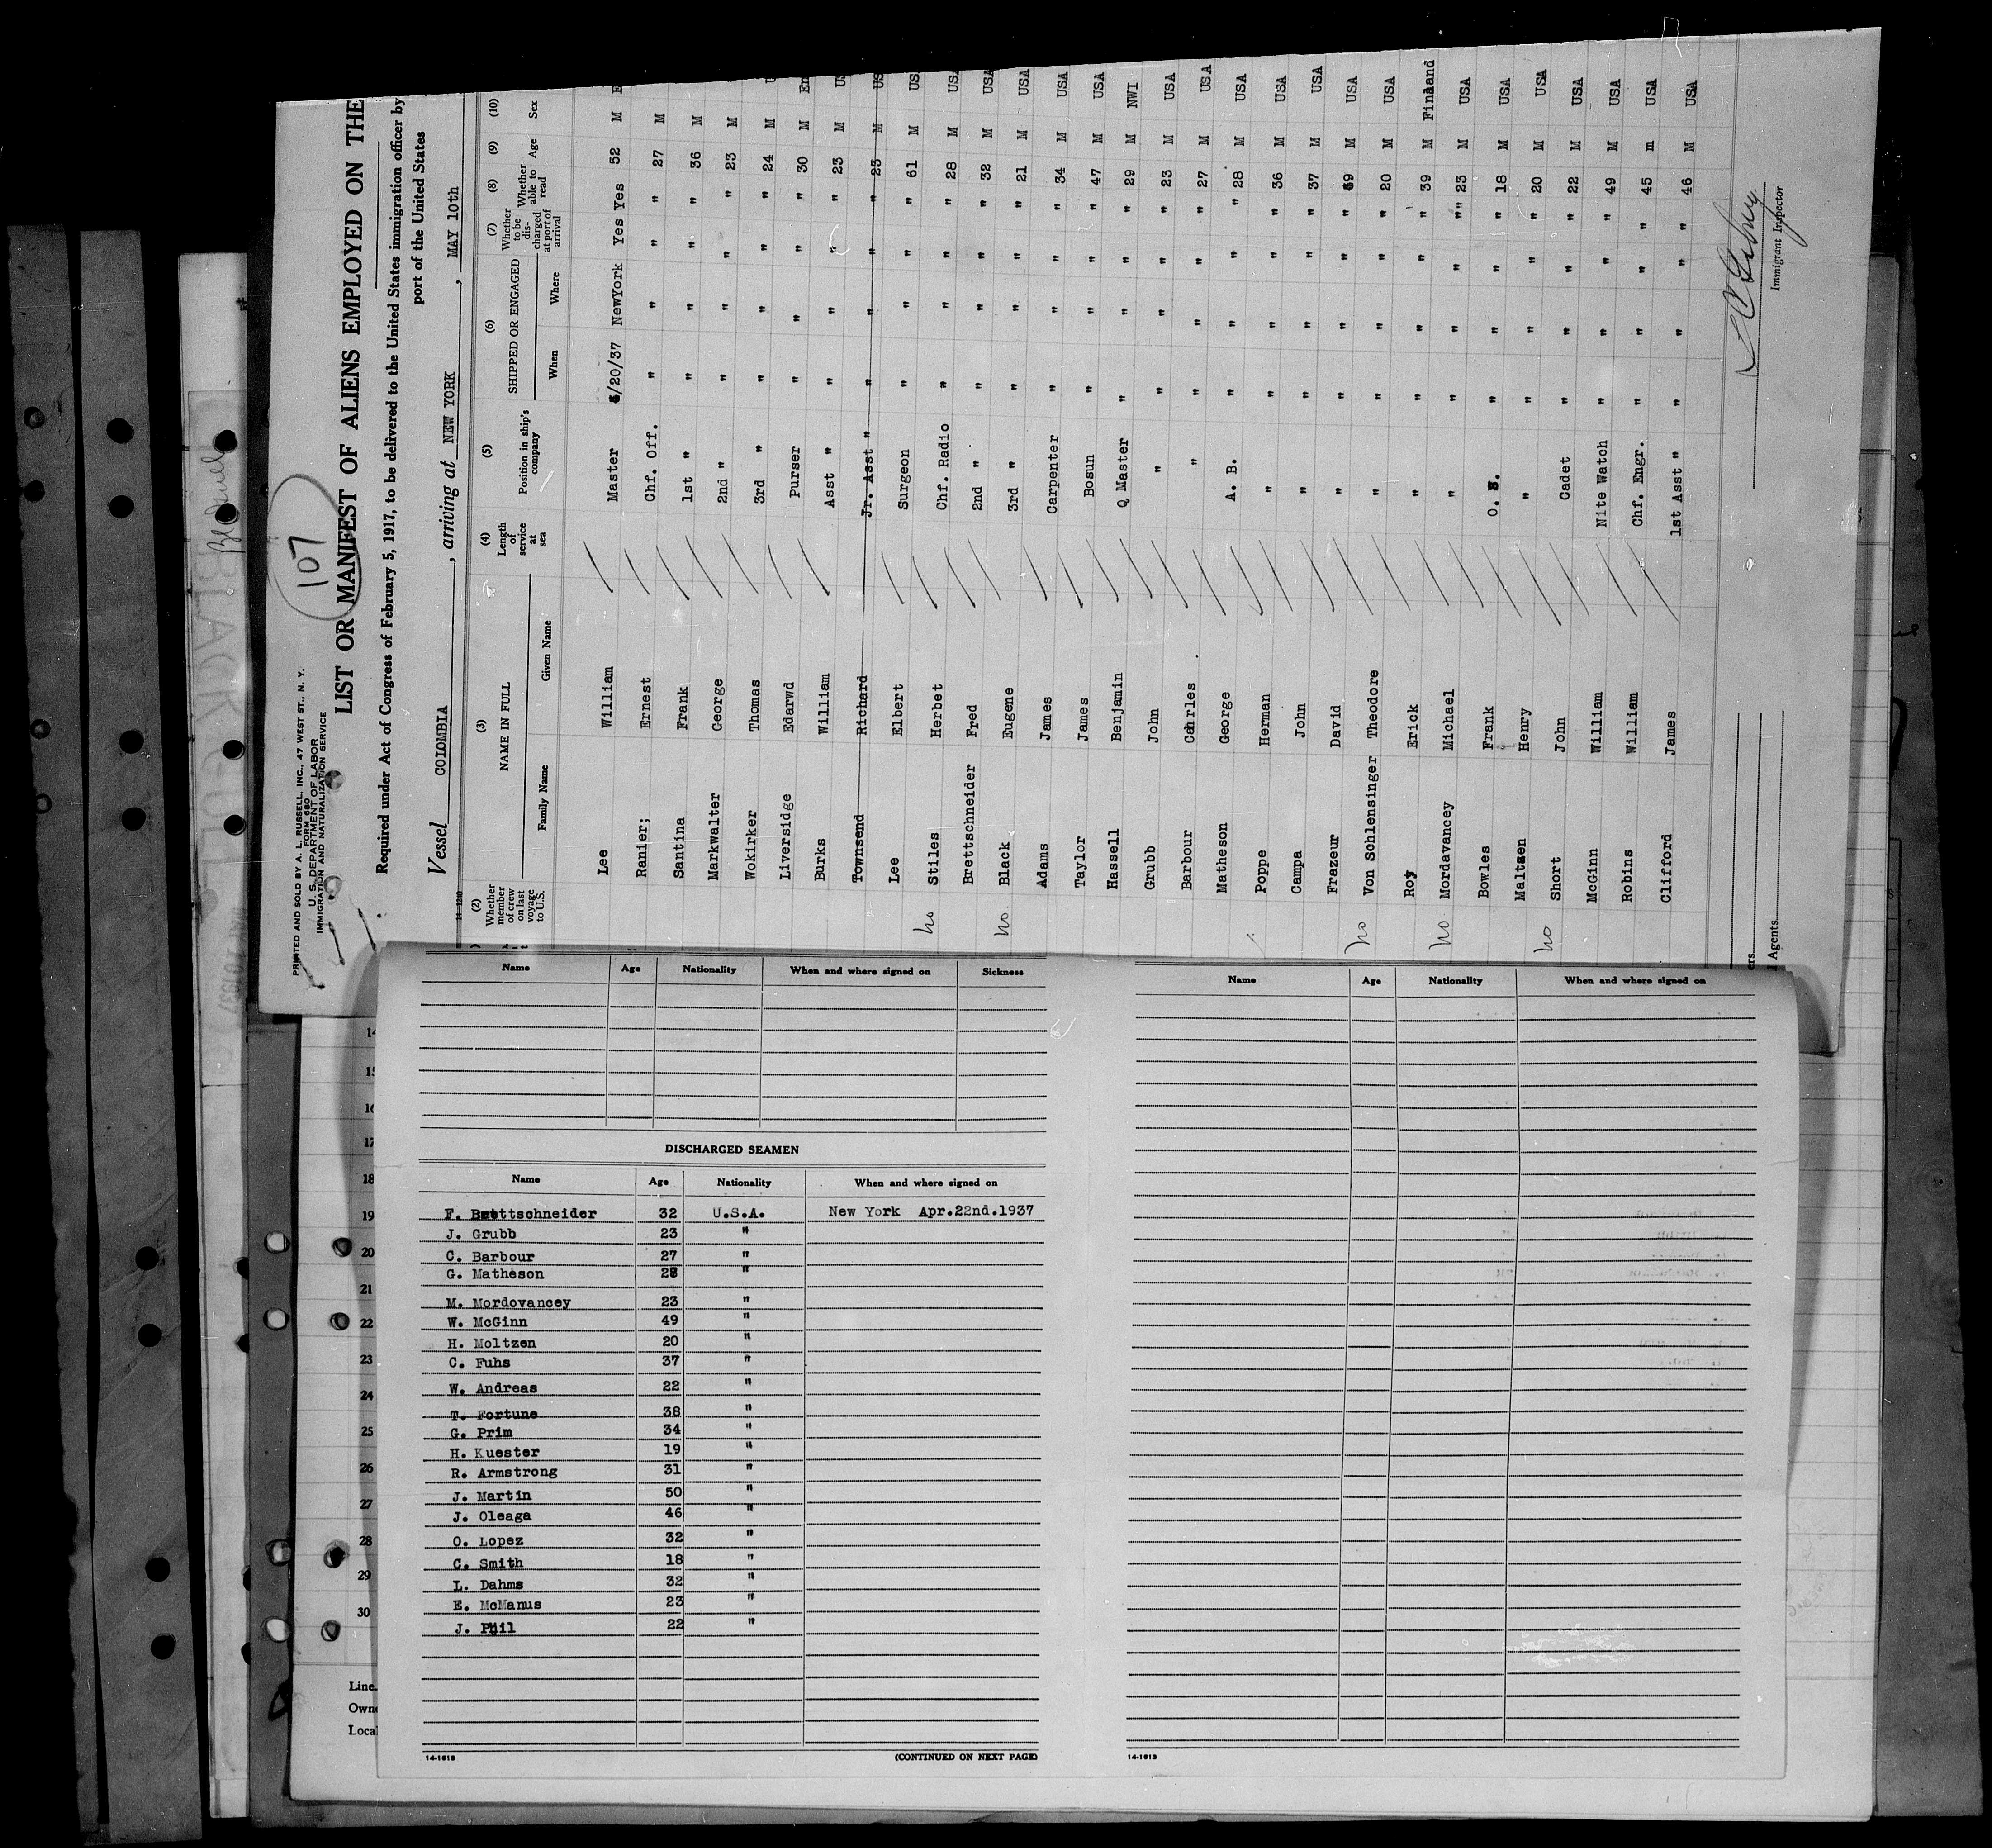 107
PRINTED AND SOLD BY A. L. RUSSELL, INC., 47 WEST ST., N. Y.
FORM 680
U. S. DEPARTMENT OF LABOR
IMMIGRATION AND NATURALIZATION SERVICE
LIST OR MANIFEST OF ALIENS EMPLOYED ON THE
Required under Act of Congress of February 5, 1917, to be delivered to the United States immigration officer by
port of the United States
Vessel COLOMBIA, arriving at NEW YORK, MAY 10th
14-1240
(2) (3) (4) (5) (6) (7) (8) (9) (10)
Whether member of crew on last voyage to U.S. NAME IN FULL Length of service at sea Position in ship's company SHIPPED OR ENGAGED Whether to be discharged at port of arrival Whether able to read Age Sex
Family Name Given Name When Where
Lee William Master /20/37 NewYork Yes Yes 52 M E
Ranier; Ernest Chf. Off. " " " " 27 M
Santina Frank 1st " " " " " 36 M
Markwalter George 2nd " " " " " 23 M
Wokirker Thomas 3rd " " " " " 24 M U
Liversidge Edarwd Purser " " " " 30 M En
Burks William Asst " " " " " 23 M US
Townsend Richard Jr. Asst " " " " " 23 M US
Lee Elbert Surgeon " " " " 61 M US
no Stiles Herbet Chf. Radio " " " " 28 M USA
Brettschneider Fred 2nd " " " " " 32 M USA
no Black Eugene 3rd " " " " " 21 M USA
Adams James Carpenter " " " " 34 M USA
Taylor James Bosun " " " " 47 M USA
Hassell Benjamin Q Master " " " " 29 M NWI
Grubb John " " " " " 23 M USA
Barbour Cahrles " " " " " 27 M USA
Matheson George A. B. " " " " 28 M USA
Poppe Herman " " " " " 36 M USA
Campa John " " " " " 37 M USA
Frazeur David " " " " " 9 M USA
no Von Schlensinger Theodore " " " " " 20 M USA
Roy Erick " " " " " 39 M Finland
no Mordavancey Michael " " " " "" 23 M USA
Bowles Frank O. S. " " " " 18 M USA
Maltzen Henry " " " " " 20 M USA
no Short John Cadet " " " " 22 M USA
McGinn William Nite Watch " " " " 49 M USA
Robins William Chf. Engr. " " " " 45 m USA
Clifford James 1st Asst " " " " " 46 M USA
Immigrant Inspector
ers
Agents
Name Age Nationality When and where signed on Sickness
DISCHARGED SEAMEN
Name Age Nationality When and where signed on
F. Brettschneider 32 U.S.A. New York Apr.22nd.1937
J. Grubb 23 "
C. Barbour 27 "
G. Matheson 28 "
M. Mordovancey 23 "
W. McGinn 49 "
H. Moltzen 20 "
C. Fuhs 37 "
W. Andreas 22 "
T. Fortune 38 "
G. Prim 34 "
H. Kuester 19 "
R. Armstrong 31 "
J. Martin 50 "
J. Oleaga 46 "
O. Lopez 32 "
C. Smith 18 "
L. Dahms 32 "
E. McManus 23 "
J. 22 "
14-1613 (CONTINUED ON NEXT PAGE)
Name Age Nationality When and where signed on
14-1613
14
15
16
17
18
19
20
21
22
23
24
25
26
27
28
29
30
Line
Owne
Local